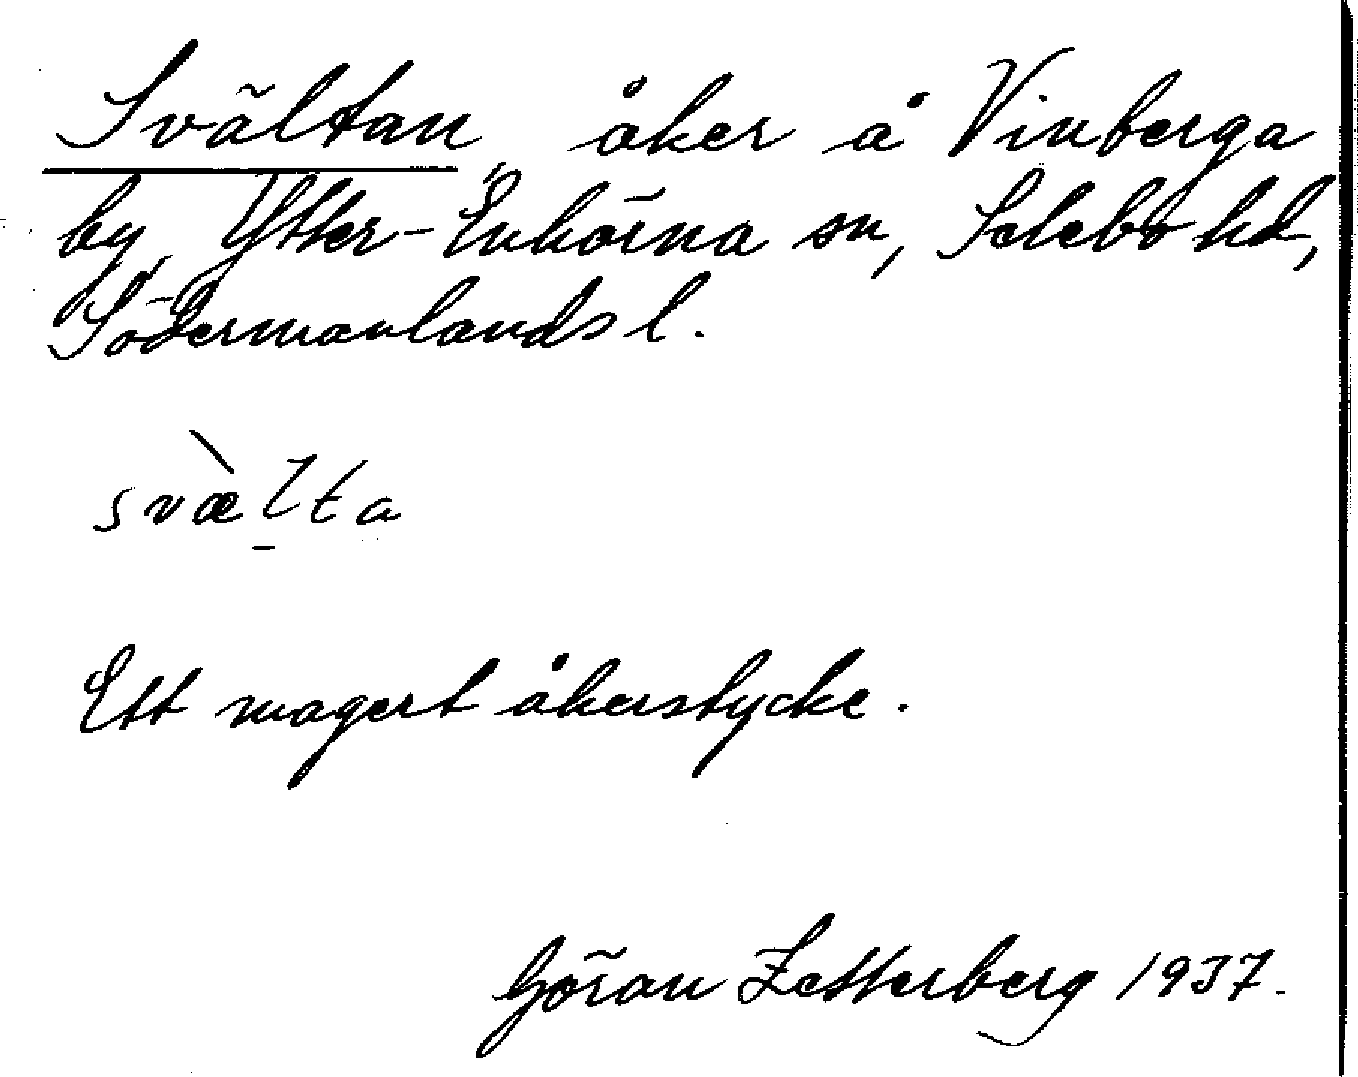 Svältan, åker å Vinberga
by, Ytter-Enhörna sn, Selebo hd,
Södermanlands l.
svæ̀lta
Ett magert åkerstycke.
Göran Zetterberg 1937.